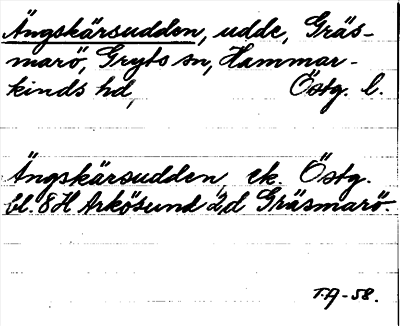 Ängskärsudden, udde, Gräs-
marö, Gryts sn, Hammar-
kinds hd, Östg. l.
Ängskärsudden ek. Östg.
bl. 8H Arkösund 2d Gräsmarö
T.A-58.